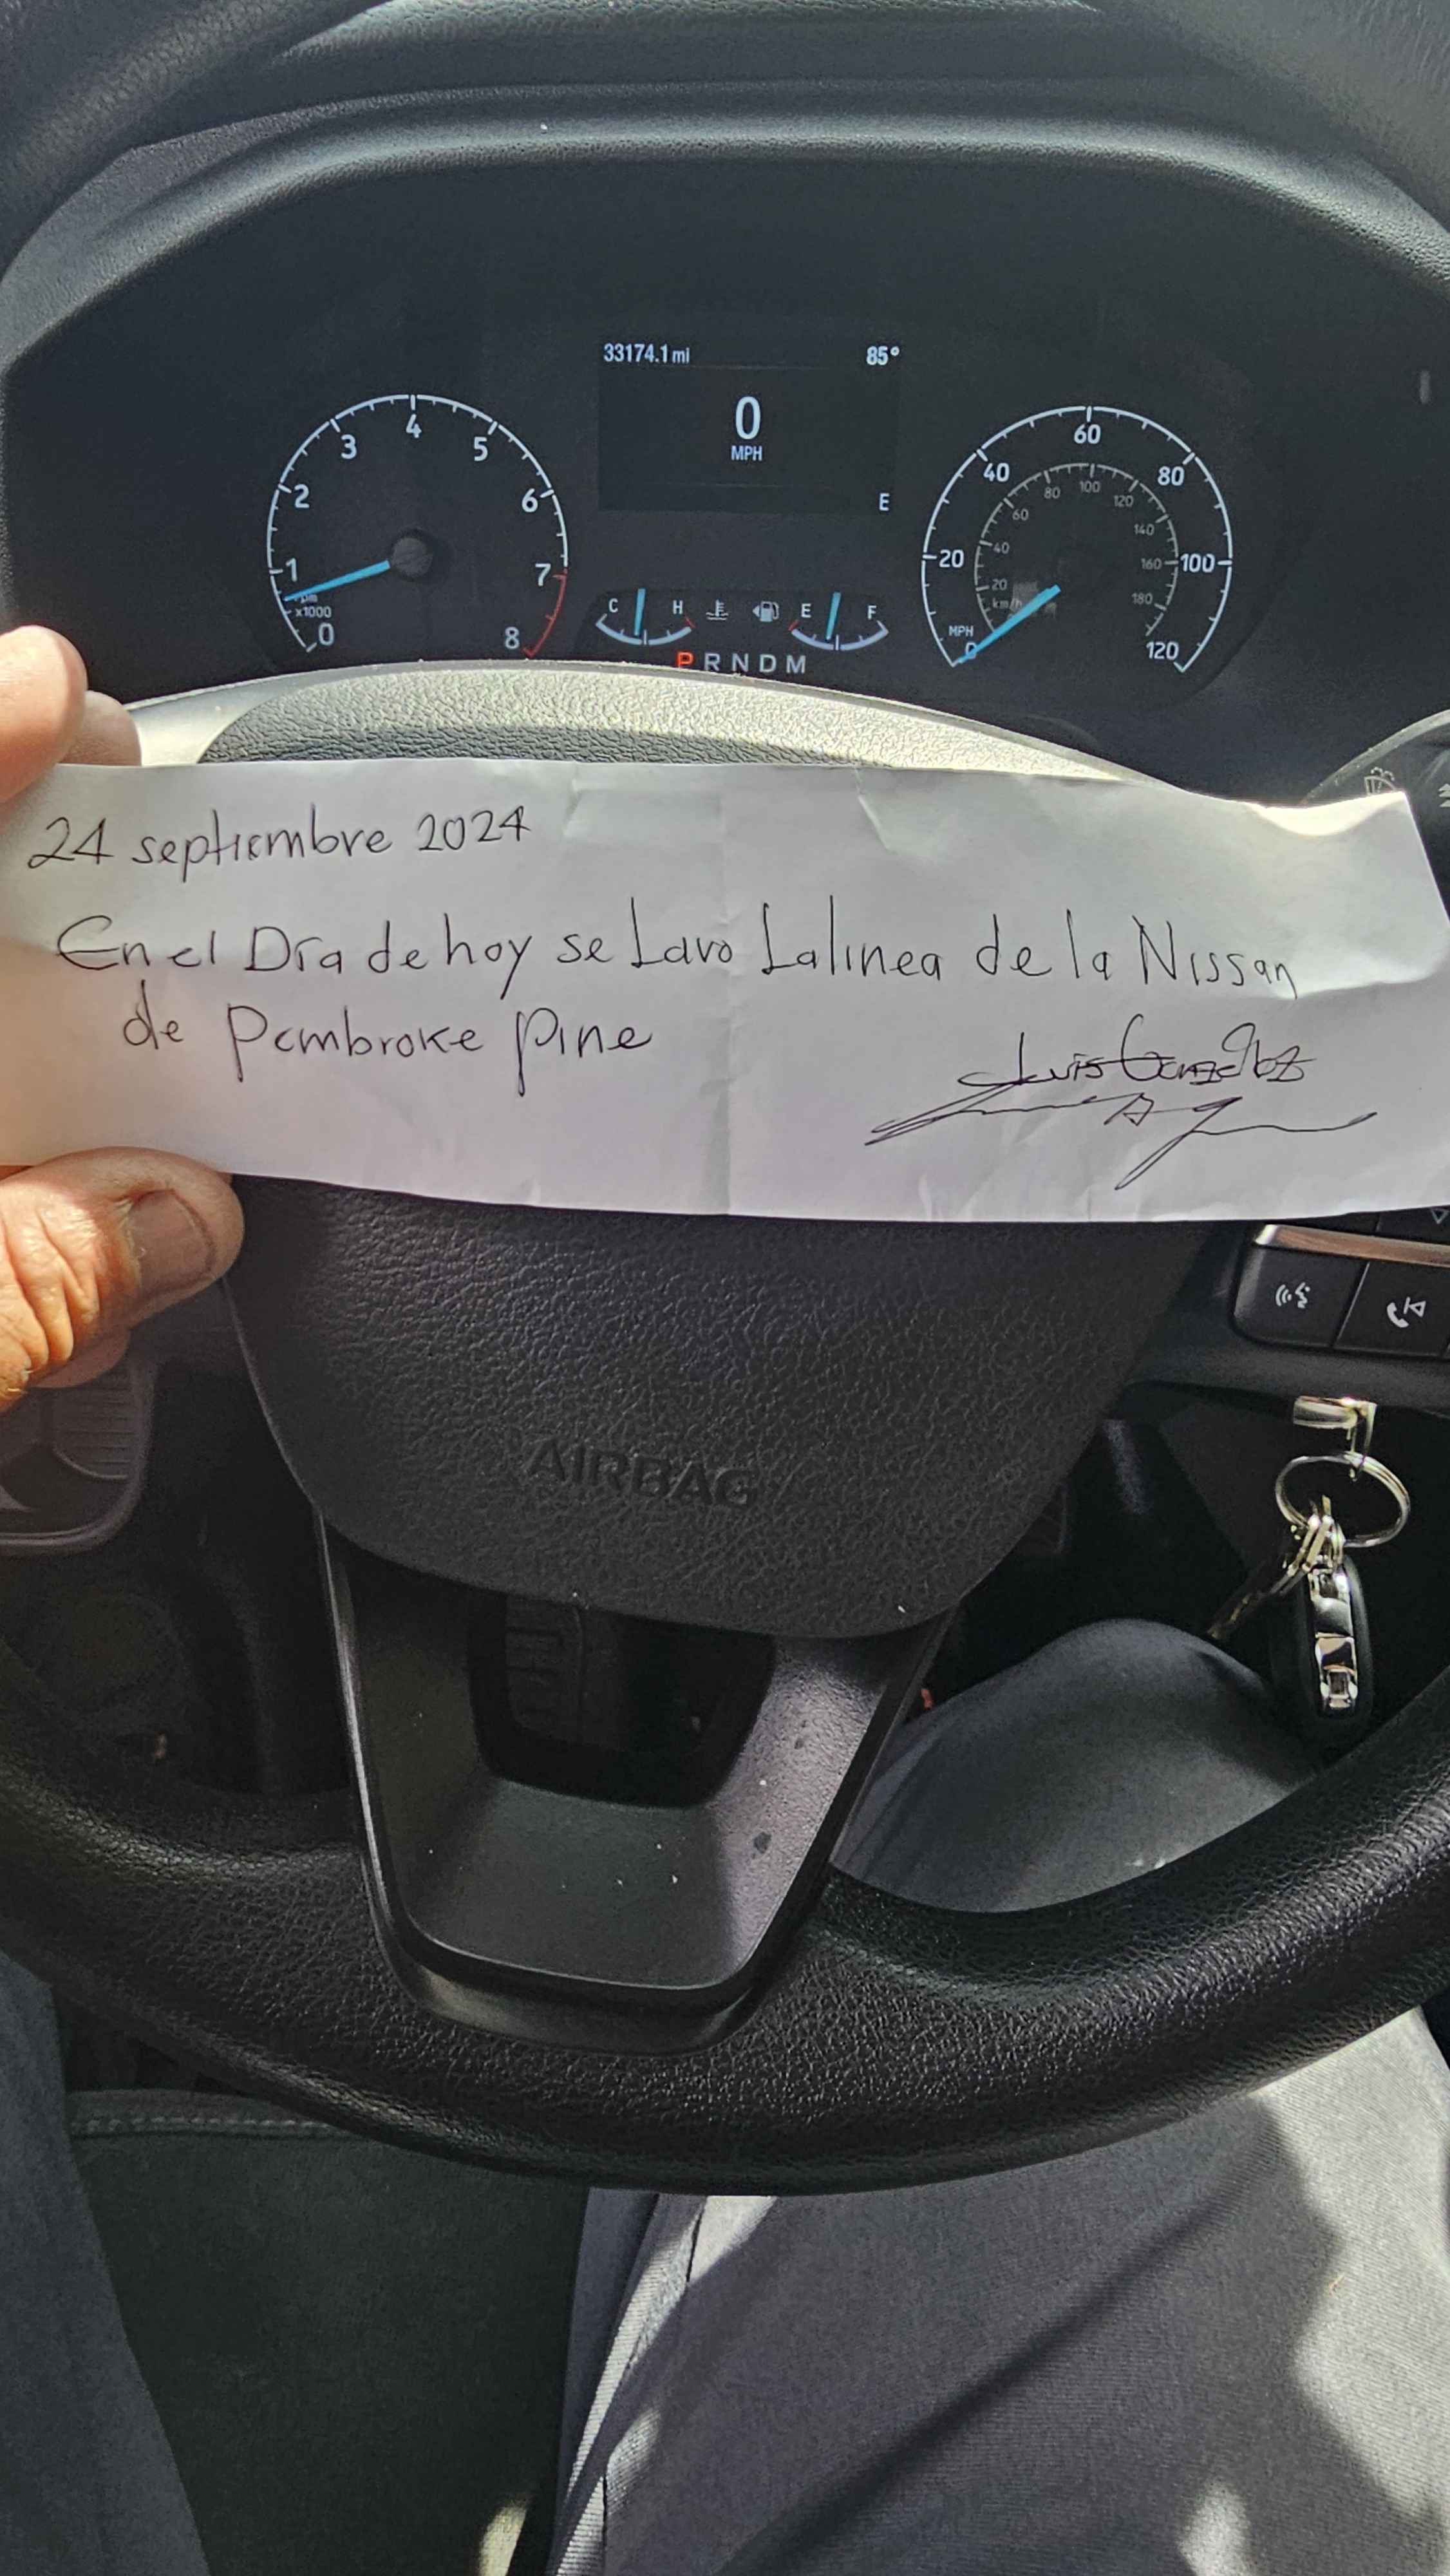 33174.1 mi 85°
0
MPH
E
1 2 3 4 5 6 7 8
x1000
0
C H E F
P R N D M
20 40 60 80 100 120
20 40 60 80 100 120 140 160 180
km/h
MPH
0
24 septiembre 2024
En el Día de hoy se Lavo La linea de la Nissan
de Pembroke Pine
Luis González
AIRBAG